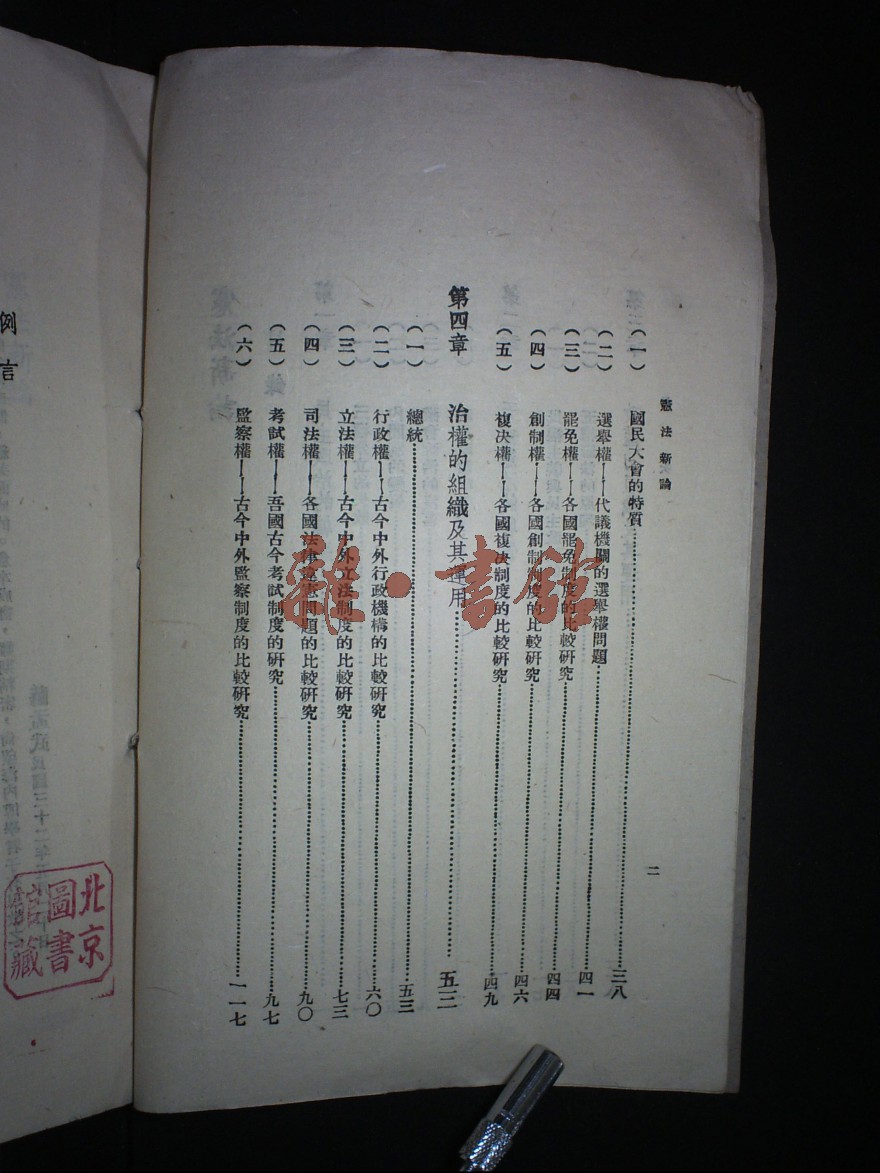 憲法新論
二
(一) 國民大會的特質……三八
(二) 選舉權——代議機關的選舉權問題……四一
(三) 罷免權——各國罷免制度的比較硏究……四四
(四) 創制權——各國創制制度的比較硏究……四六
(五) 複决權——各國複决制度的比較硏究……四九
第四章 治權的組織及其運用……五三
(一) 總統……五三
(二) 行政權——古今中外行政機構的比較硏究……六〇
(三) 立法權——古今中外立法制度的比較硏究……七三
(四) 司法權——各國法律違憲問題的比較硏究……九〇
(五) 考試權——吾國古今考試制度的硏究……九七
(六) 監察權——古今中外監察制度的比較硏究……一一七
例言
北京
圖書
館藏
雜·書館